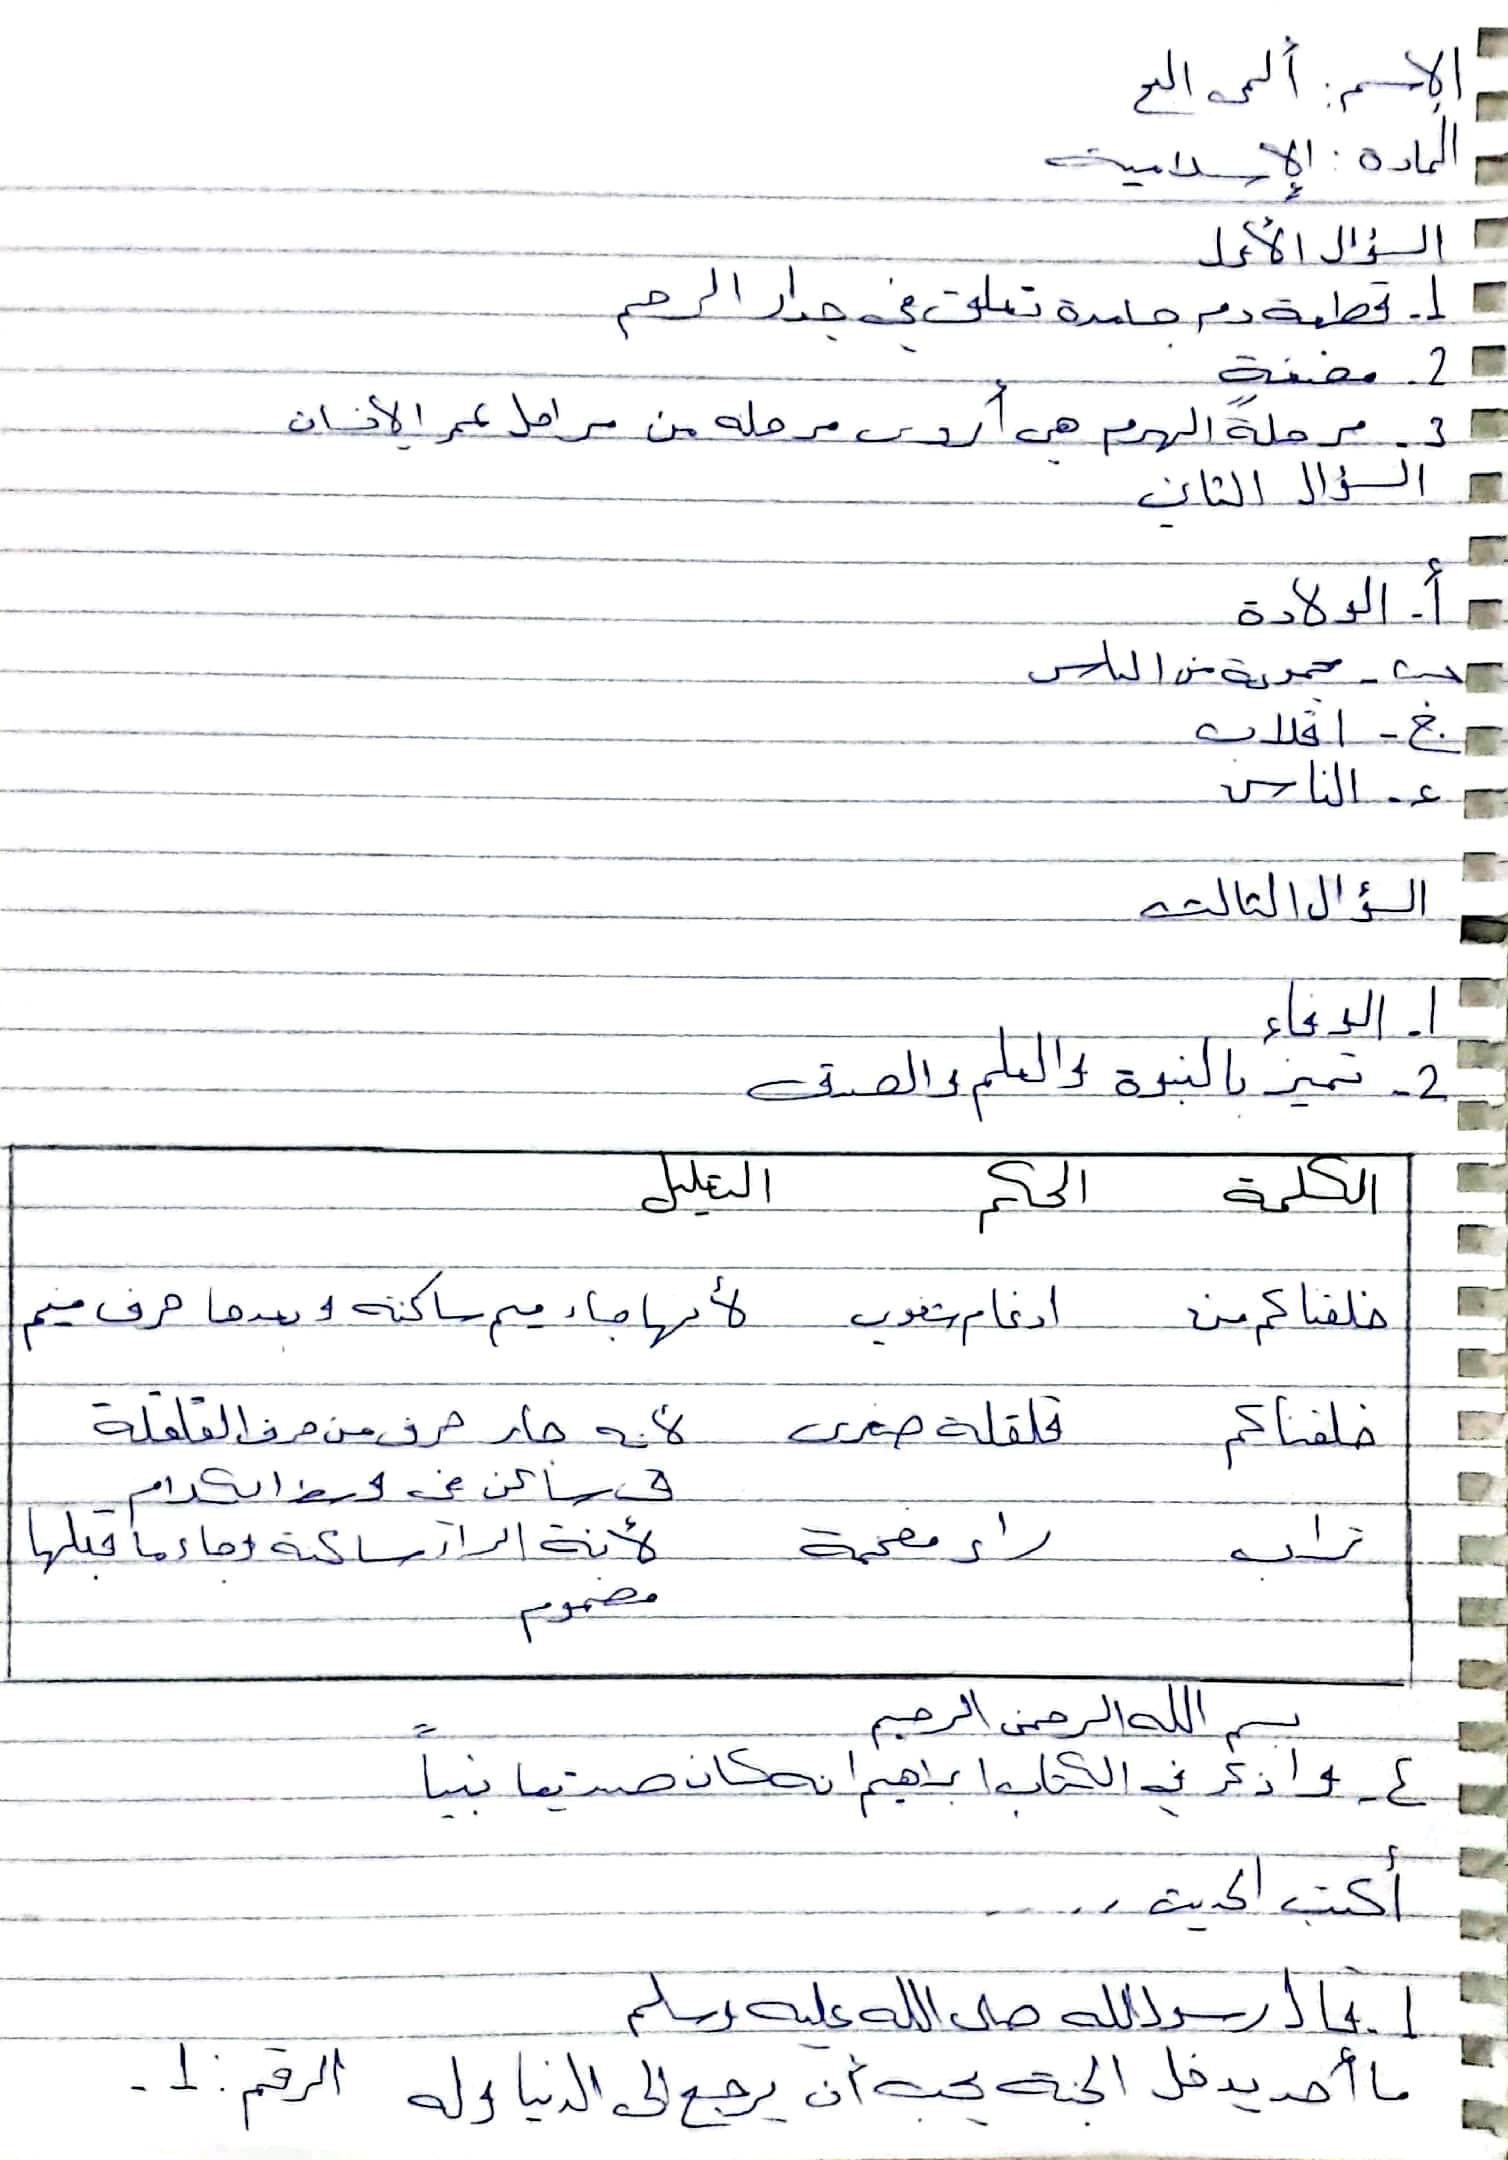 الإسم: ألمى الح
المادة: الإسلامية
السؤال الأول
1- قطعة دم جامدة تعلق في جدار الرحم
2- مضغةٍ
3- مرحلةً الهرم هي أردى مرحله من مراحل عمر الإنسان
السؤال الثاني
أ- الولادة
ب- مجموعة من الناس
ج- انقلاب
د- الناس
السؤال الثالث
1- الوفاء
2- تميز بالنبوة والعلم والصدق
الكلمة الحكم التعليل
خلقناكم من ادغام شفوي لأنها جاء ميم ساكنة وبعدها حرف ميم
خلقناكم قلقلة صغرى لأنه جاء حرف من حرف القلقلة
ق ساكن في وسط الكلام
تراب راء مفخمة لأنة الراء ساكنة وجاء ما قبلها
مضموم
بسم الله الرحمن الرحيم
4- واذكر في الكتاب ابراهيم انه كان صديقا نبياً
أكتب الحديث .....
1- قال رسول الله صلى الله عليه وسلم
ما أحد يدخل الجنة يحب أن يرجع الى الدنيا وله الرقم: 1-